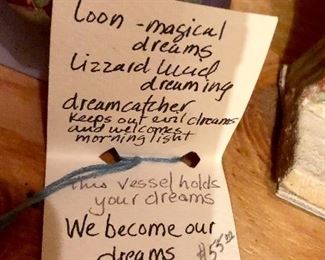 Loon - magical
dreams
Lizzard lucid
dreaming
dreamcatcher
keeps out evil dreams
and welcomes
morning light
this vessel holds
your dreams
We become our
dreams
$55.00